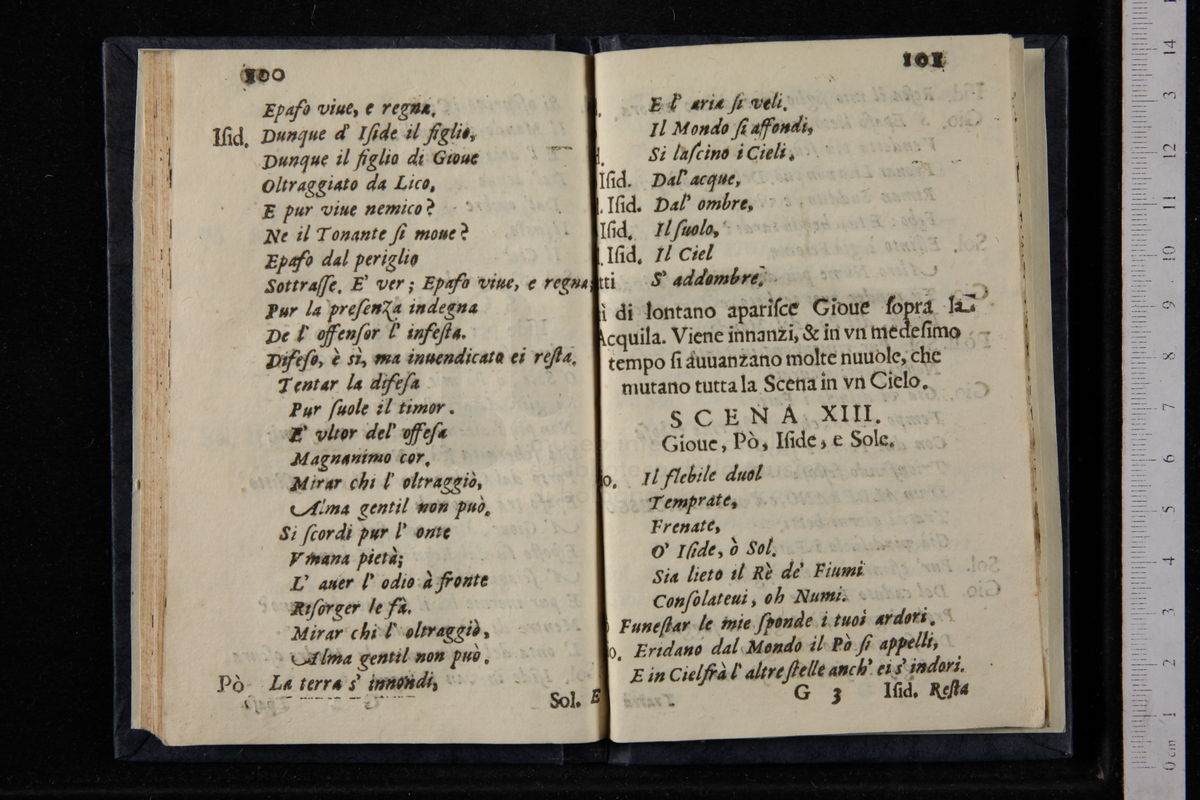 100
Epaſo viue, e regna.
Iſid. Dunque d' Iſide il figlio,
Dunque il figlio di Gioue
Oltraggiato da Lico,
E pur viue nemico?
Ne il Tonante ſi moue?
Epaſo dal periglio
Sottraſſe. E' ver; Epaſo viue, e regna;
Pur la preſenza indegna
De l' offenſor l' infeſta.
Difeſo, è sì, ma inuendicato ei reſta.
Tentar la difeſa
Pur ſuole il timor.
E' vltor del' offeſa
Magnanimo cor.
Mirar chi l' oltraggiò,
Alma gentil non può.
Si ſcordi pur l' onte
Vmana pietà;
L' auer l' odio à fronte
Riſorger le fà.
Mirar chi l' oltraggiò,
Alma gentil non può.
Pò La terra s' innondi,
Sol. E
101
E l' aria ſi veli.
Il Mondo ſi affondi,
Si laſcino i Cieli.
Iſid. Dal' acque,
. Iſid. Dal' ombre,
Iſid. Il ſuolo,
. Iſid. Il Ciel
tti S' addombre.
ì di lontano apariſce Gioue ſopra la
Acquila. Viene innanzi, & in vn medeſimo
tempo ſi auuanzano molte nuuole, che
mutano tutta la Scena in vn Cielo.
SCENA XIII.
Gioue, Pò, Iſide, e Sole.
o. Il flebile duol
Temprate,
Frenate,
O' Iſide, ò Sol.
Sia lieto il Rè de' Fiumi
Conſolateui, oh Numi.
Funeſtar le mie ſponde i tuoi ardori.
o. Eridano dal Mondo il Pò ſi appelli,
E in Ciel frà l' altre ſtelle anch' ei s' indori.
G 3 Iſid. Reſta